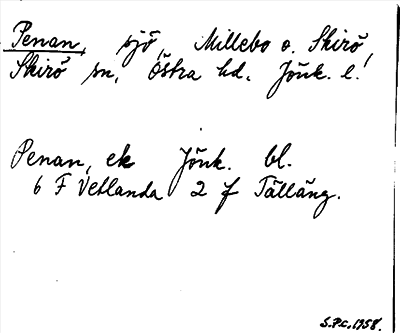 Penan, sjö, Millebo o. Skirö,
Skirö sn, Östra hd. Jönk. l.!
Penan, ek Jönk. bl.
6 F Vetlanda 2 f Tälläng.
S.P.C. 1958.